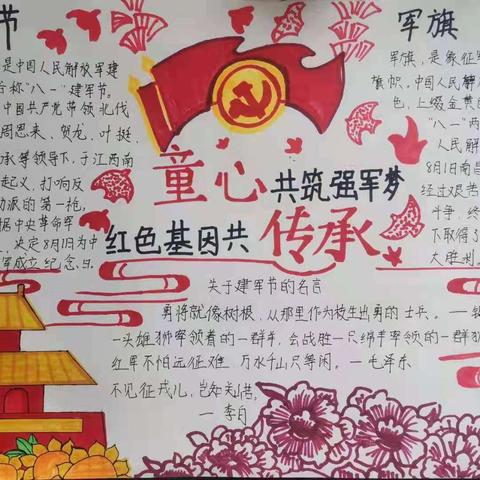 节
是中国人民解放军建
合称"八一"建军节。
中国共产党带领北伐
周恩来、贺龙、叶挺,
承等领导下,于江西南
起义,打响反
动派的第一枪。
据中央革命军
决定8月1日为中
军成立纪念日。
童心共筑强军梦
红色基因共传承
军旗
军旗,是象征军
旗帜,中国人民解
色,上缀金黄色
"八一"两
人民解
8月1日南昌
经过艰苦
斗争,终
下取得了
大胜利。
关于建军节的名言
勇将就像树根,从那里作为枝生出勇的士兵。一
一头雄狮率领着的一群羊,会战胜一只绵羊率领的一群
红军不怕远征难,万水千山只等闲。一毛泽东
不见征戎儿,岂知关山苦。
一李白